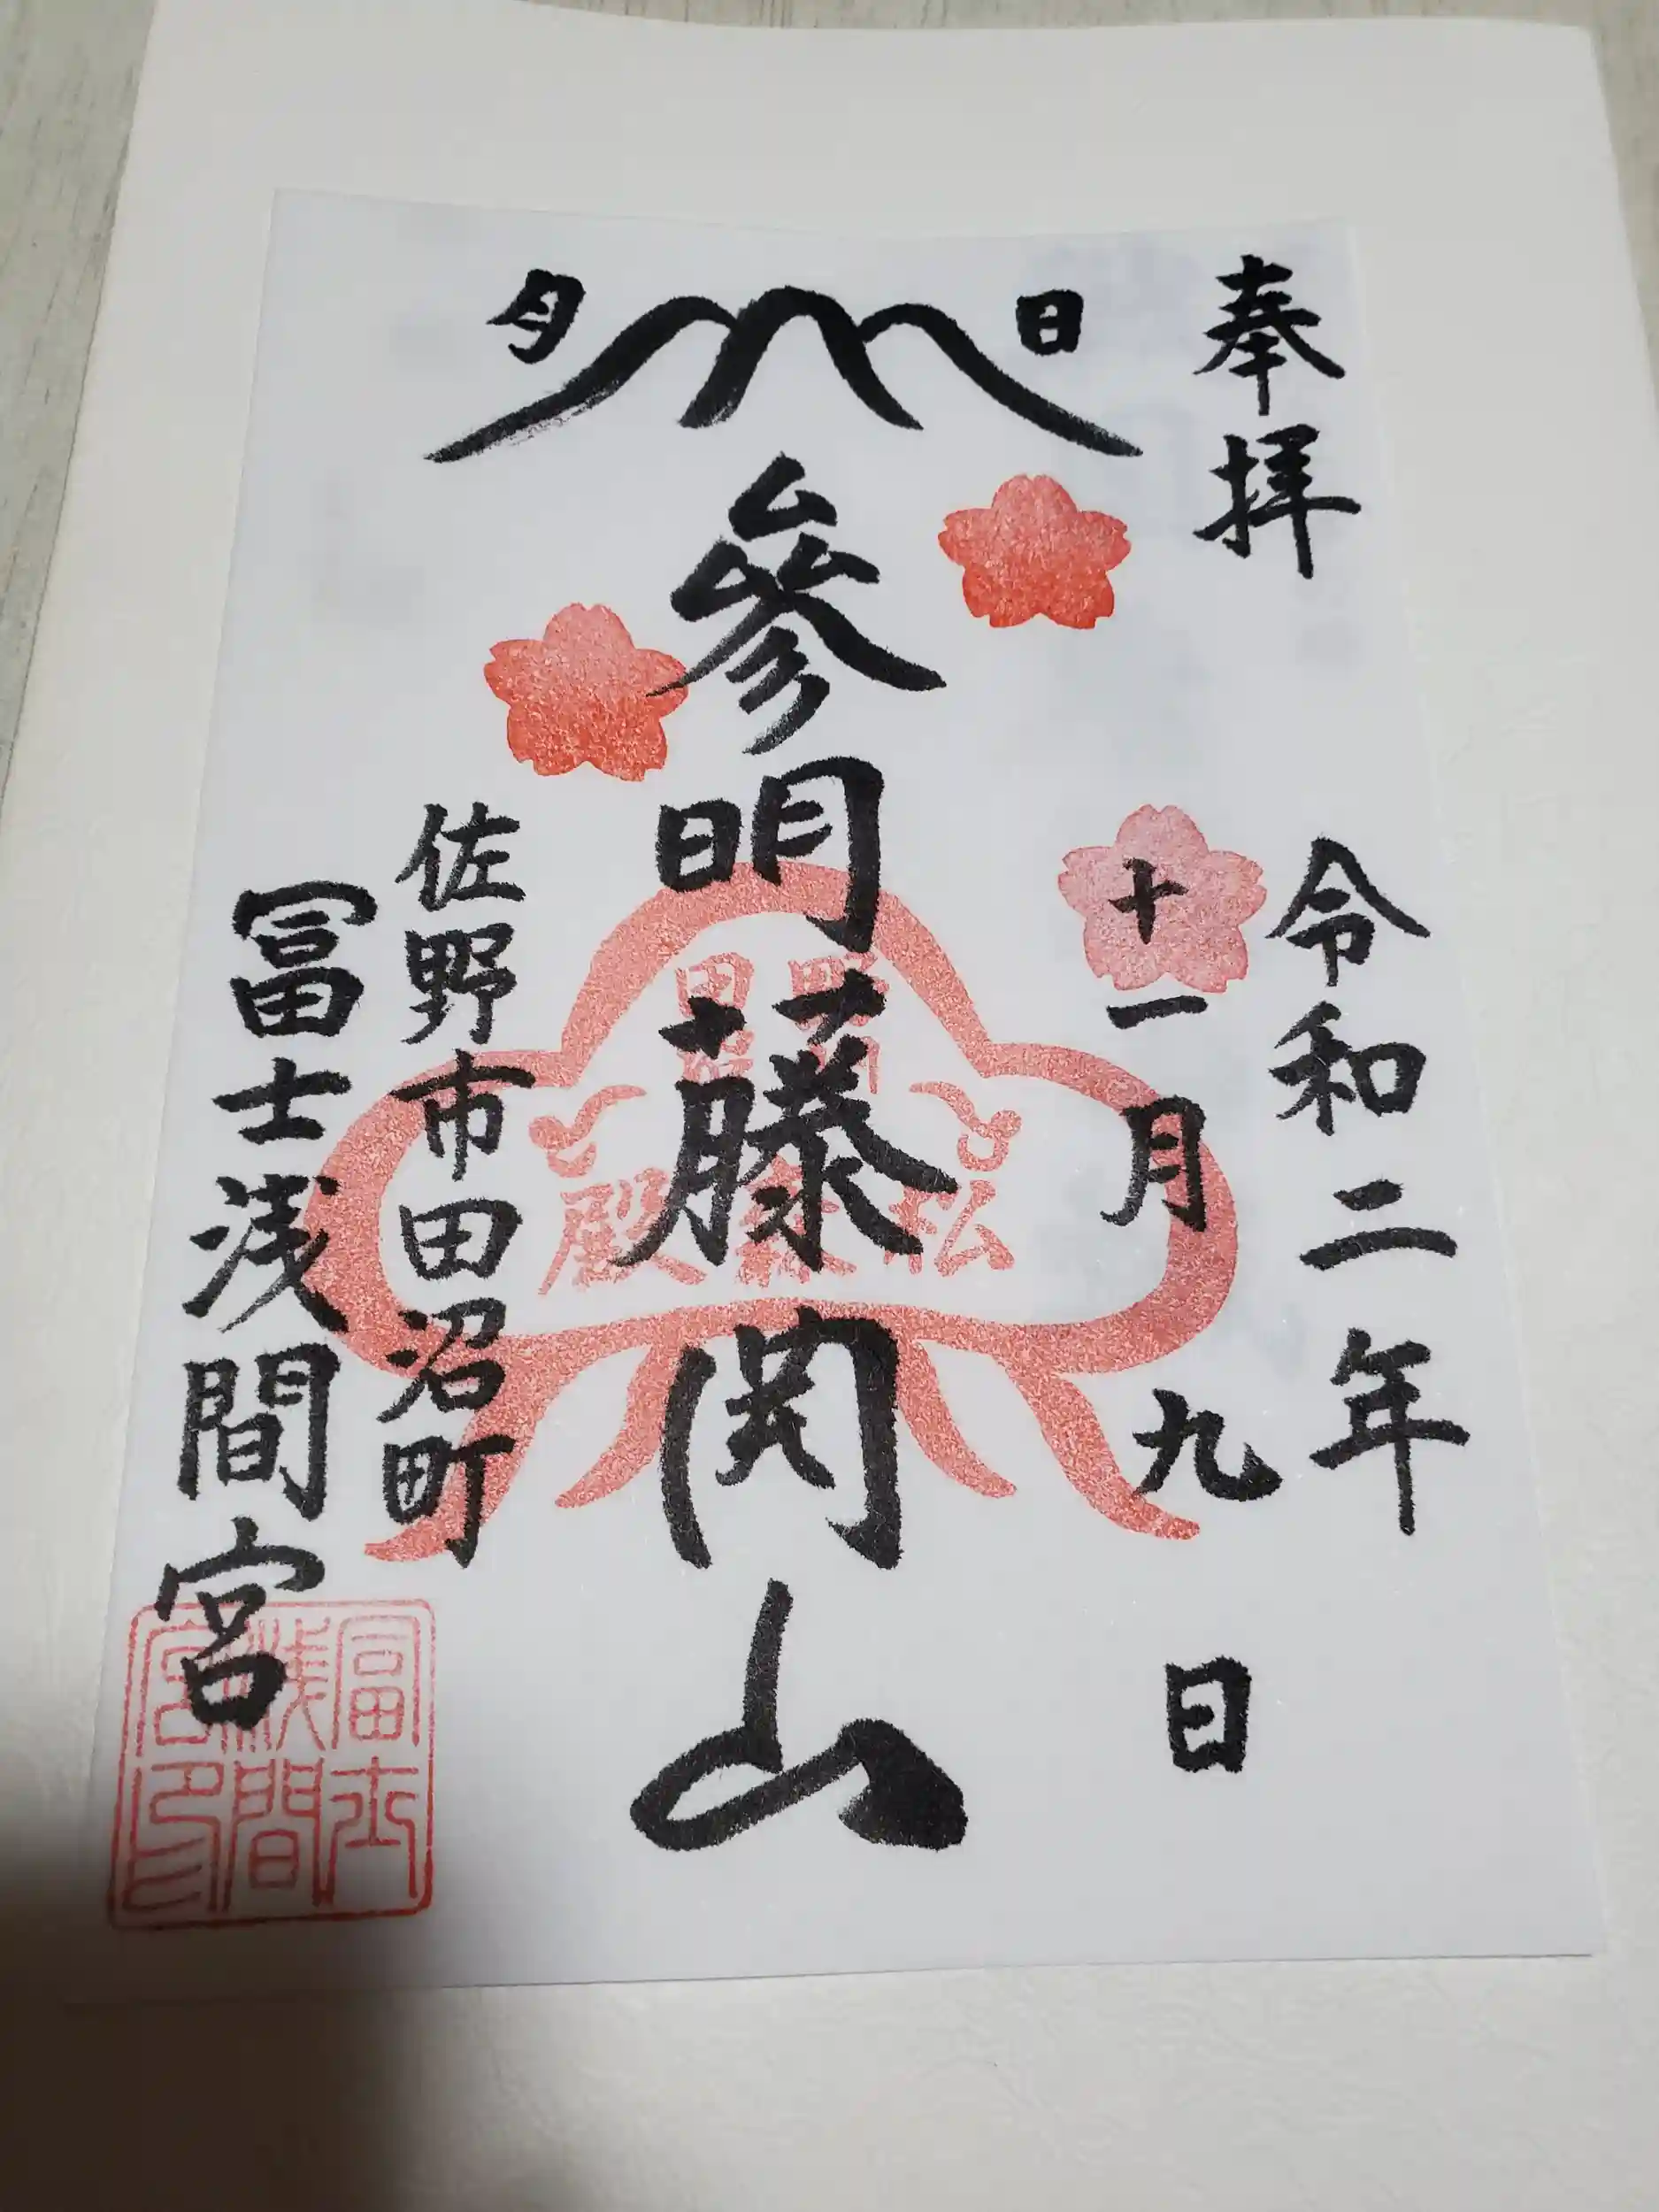 奉拝
令和二年
十一月九日
日
月
參明藤開山
佐野市田沼町
冨士浅間宮
松
殿
冨士
浅間
宮印